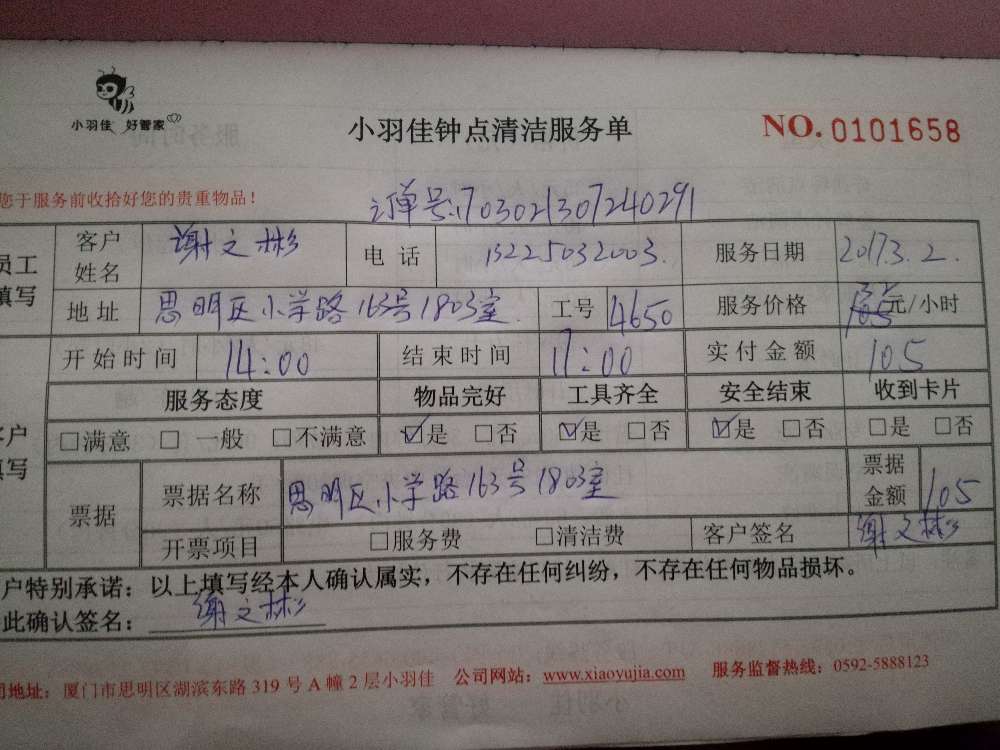 小羽佳 好管家
小羽佳钟点清洁服务单
NO. 0101658
您于服务前收拾好您的贵重物品！
订单号:1703021307240291
员工填写
客户姓名 谢文彬 电话 13225032003. 服务日期 2017.3.2.
地址 思明区小学路163号1803室. 工号 14650 服务价格 35元/小时
客户填写
开始时间 14:00 结束时间 17:00 实付金额 105
服务态度 物品完好 工具齐全 安全结束 收到卡片
□满意 □一般 □不满意 ☑是 □否 ☑是 □否 ☑是 □否 □是 □否
票据 票据名称 思明区小学路163号1803室 票据金额 105
开票项目 □服务费 □清洁费 客户签名 谢文彬
户特别承诺：以上填写经本人确认属实，不存在任何纠纷，不存在任何物品损坏。
此确认签名： 谢文彬
司地址：厦门市思明区湖滨东路 319 号 A 幢 2 层小羽佳 公司网站：www.xiaoyujia.com 服务监督热线：0592-5888123